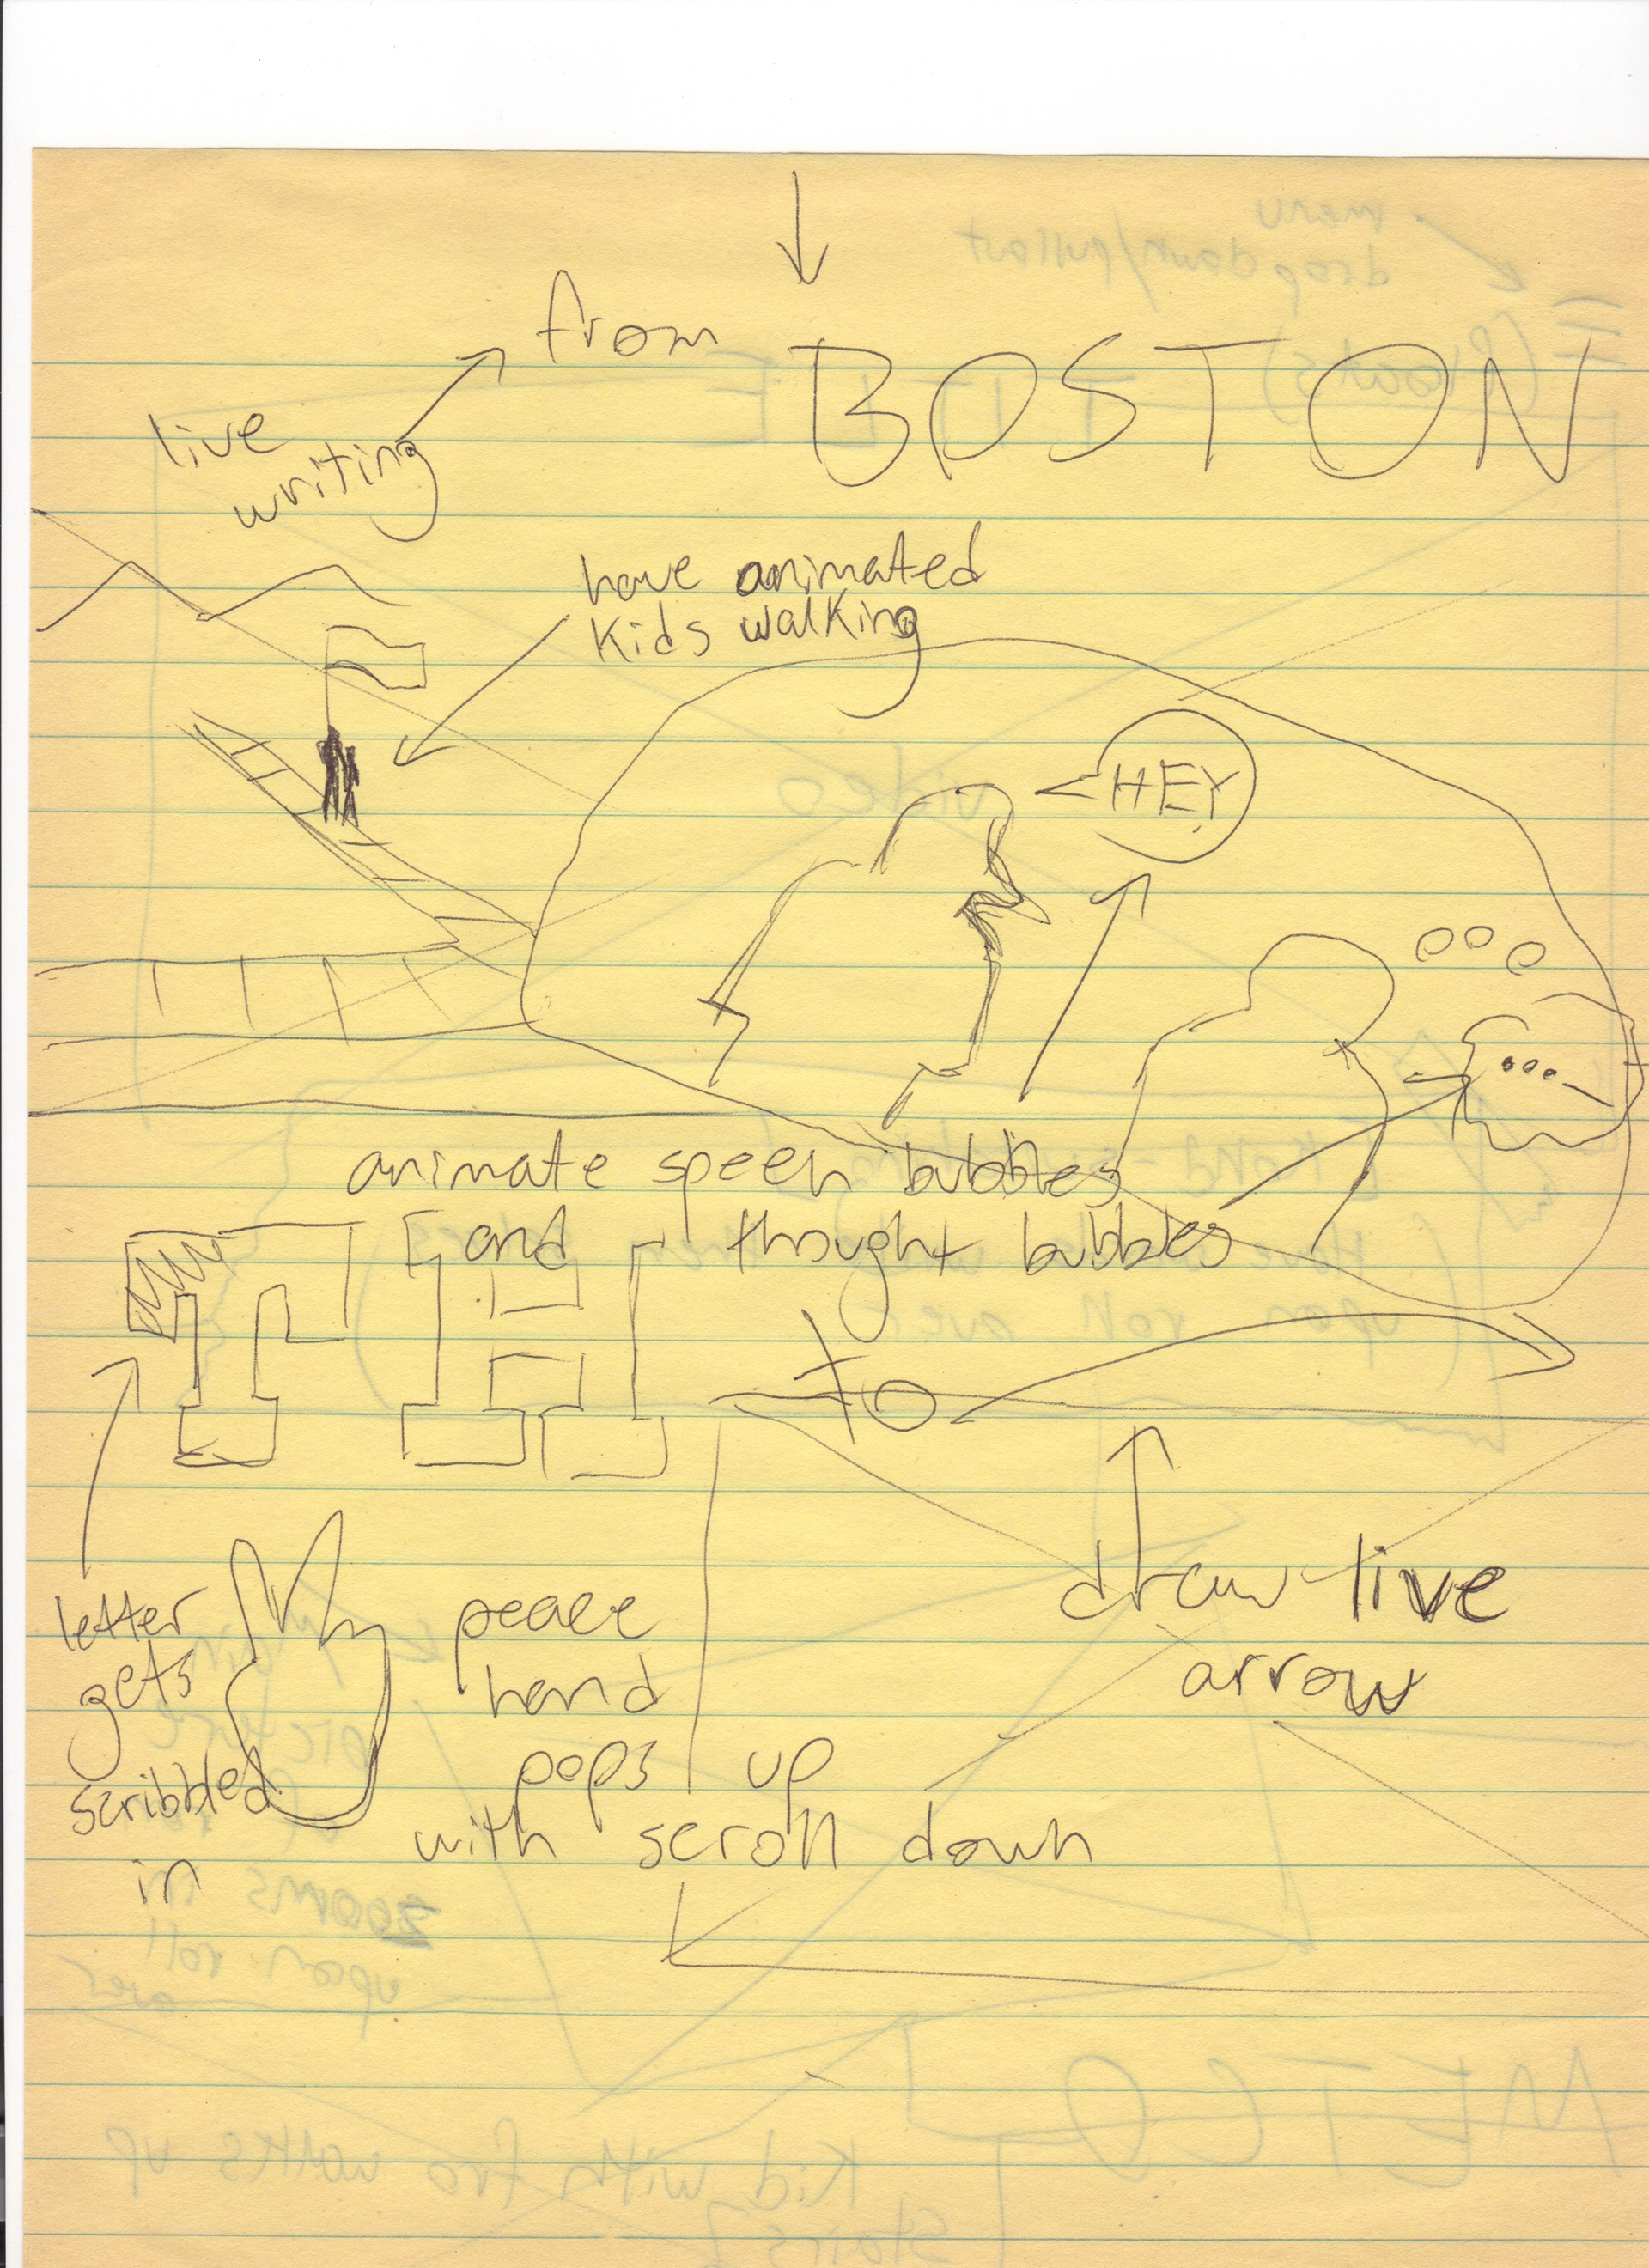 from
BOSTON
live
writing
have animated
kids walking
HEY
...
animate speeh bubbles
and thought bubbles
TH
to
draw live
arrow
letter
gets
scribbled
in
peace
hand
pops up
with scroll down